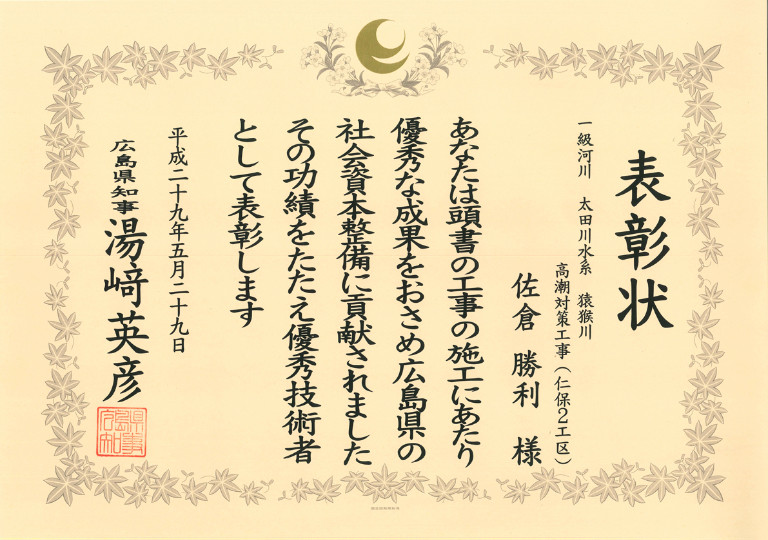 表彰状
一級河川　太田川水系　猿猴川
高潮対策工事（仁保２工区）
佐倉　勝利　様
あなたは頭書の工事の施工にあたり
優秀な成果をおさめ広島県の
社会資本整備に貢献されました
その功績をたたえ優秀技術者
として表彰します
平成二十九年五月二十九日
広島県知事
湯﨑英彦
広島県知事